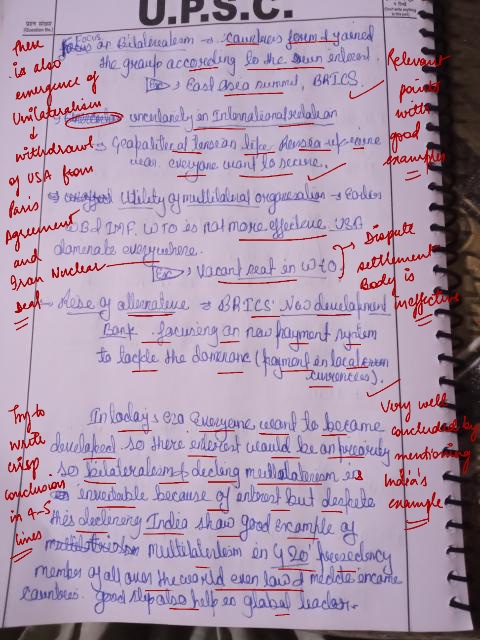 प्रश्न संख्या
(Question No.)
U.P.S.C.
Focus
Focus on Bilateralism → countries form & gained
the group according to the own interest.
Ex East Asia summit, BRICS
→ uncertainty in International relation
→ Geopolitical tension in like Russia-Ukraine
war. everyone want to secure.
→ utility of multilateral organisation → Earlier
WB, IMF, WTO is not more effective. USA
dominate everywhere.
Ex Vacant seat in WTO.
→ Rise of alternative → BRICS' New development
Bank focusing on new payment system
to tackle the dominance (payment in local
currencies).
In today's era everyone want to became
developed. so there interest would be on priority
so bilateralism & decling multilateralism is
inevitable because of interest but despite
this declining India show good example of
multilateralism in G20' presedency
member of all over the world even low & middle income
countries. good step also help as global leader.
There
is also
emergence of
Unilateralism
↓
withdrawl
of USA from
Paris
Agreement
and
Iran Nuclear
Deal
Relevant
points
with
good
examples
Dispute
settlement
Body is
ineffective
Try to
write
crisp
conclusion
in 4-5
lines
Very well
concluded by
mentioning
India's
example